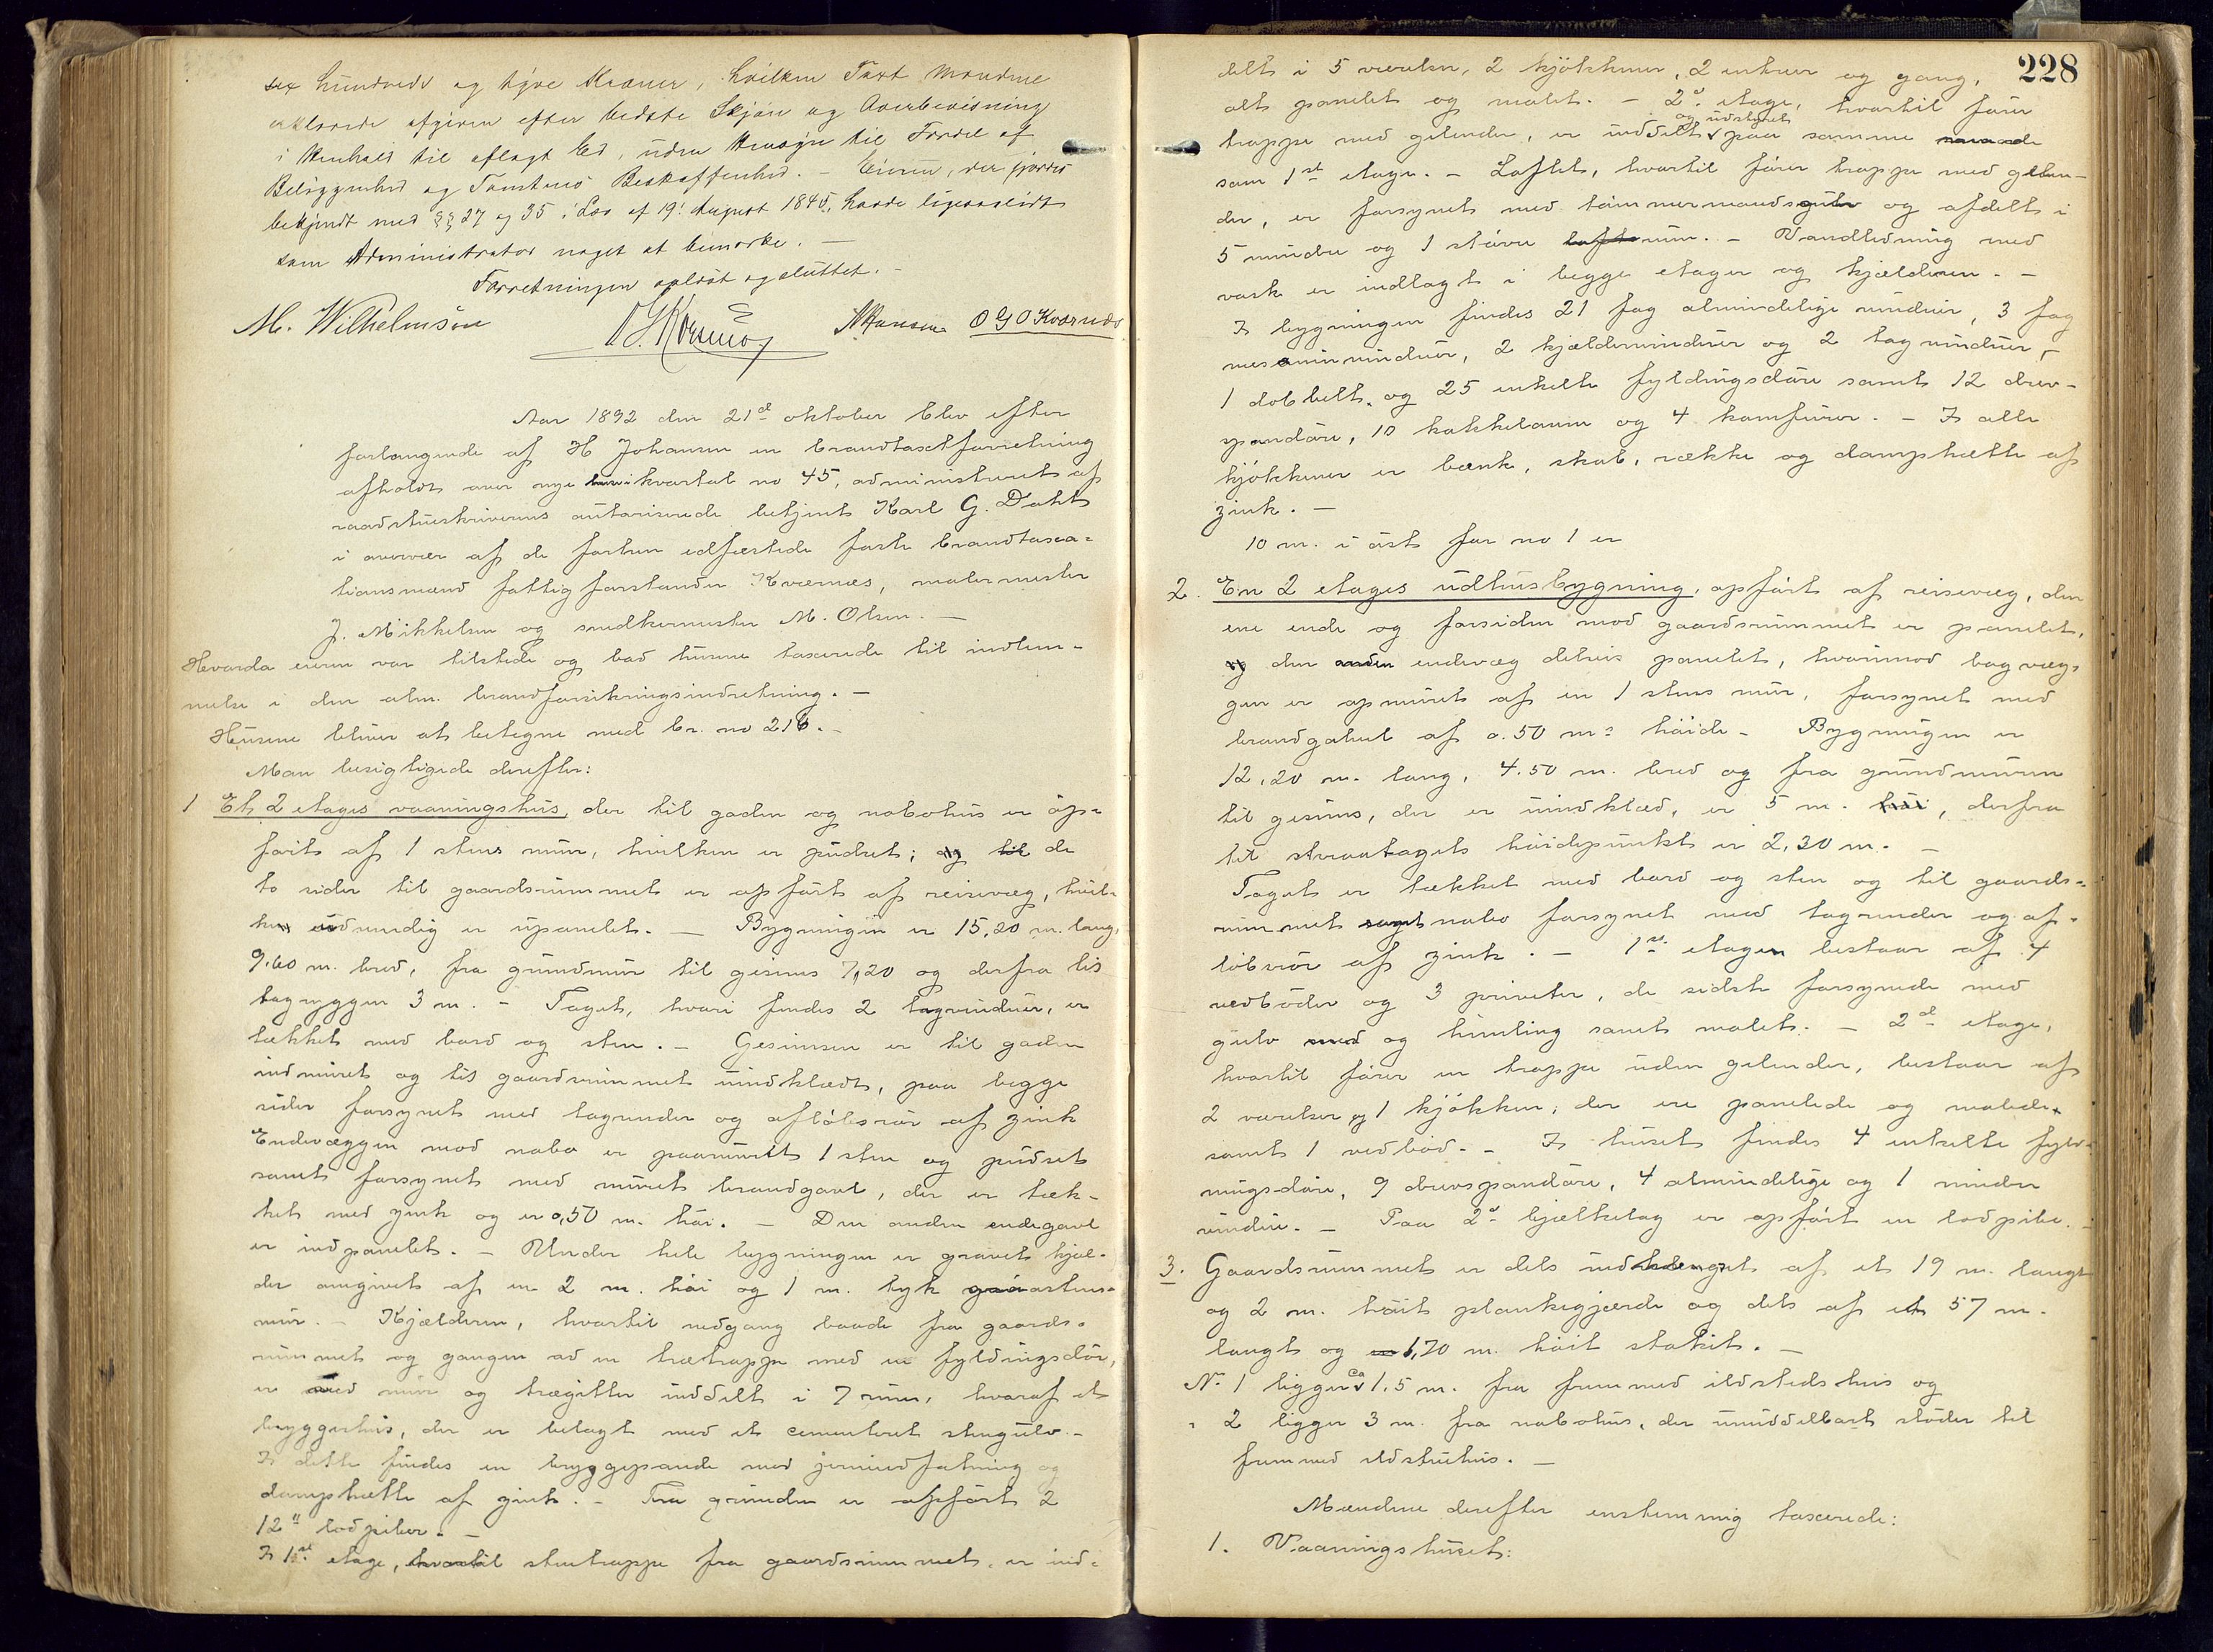 sex hundrede og tyve Kroner, hvilken Taxt Mændene
erklærede afgiven efter bedste Skjøn og Overbevisning
i Henhold til aflagt Ed, uden Hensyn til Fordel af
Beliggenhed og Tomtens Beskaffenhed. – Eieren, der gjordes
bekjendt med §§ 27 og 35 i Lov af 19. August 1845, havde ligesaalidt
som Administrator noget at bemærke. –
Forretningen oplæst og sluttet. –
M. Wilhelmsen Hansen O G O Kværnæs
Aar 1892 den 21d oktober blev efter
forlangende af H Johansen en brandtaxtforretning
afholdt over nye huse i kvartal no 45, administreret af
raadstueskriverens autoriserede betjent Karl G. Dahl
i overvær af de forhen edfæstede faste brandtaxa=
tionsmænd fattigforstander Kværnæs, malermester
J. Mikkelsen og snedkermester M. Olsen. –
Hvorda eieren var tilstede og bad husene taxerede til indlem=
melse i den alm. brandforsikringsindretning. –
Husene bliver at betegne med br. no 216. –
Man besigtigede derefter:
1 Et 2 etages vaaningshus, der til gaden og nabohus er op=
ført af 1 stens mur, hvilken er pudset; og til de
to sider til gaardsrummet er opført af reisevæg, hvil=
ken udvendig er upanelet. – Bygningen er 15,20 m. lang,
9.60 m. bred, fra grundmur til gesims 7,20 og derfra til
tagryggen 3 m. – Taget, hvori findes 2 tagvinduer, er
tækket med bord og sten. – Gesimsen er til gaden
indmuret og til gaardsrummet indklædt, paa begge
sider forsynet med tagrender og afløbsrør af zink
Endevæggen mod nabo er paamuret 1 sten og pudset
samt forsynet med muret brandgavl, der er tæk-
ket med zink og er 0,50 m. høi. – Den anden endegavl
er indpanelet. – Under hele bygningen er gravet kjæl-
der omgivet af en 2 m. høi og 1 m. tyk graastens-
mur. – Kjælderen, hvortil nedgang baade fra gaards-
rummet og gangen ad en trætrappe med en fyldingsdør,
er med mur og trægitter inddelt i 7 rum, hvoraf et
bryggerhus, der er belagt med et cementeret stengulv. –
I dette findes en bryggepande med jernindfatning og
damphætte af zink. – Fra grunden er opført 2
12" lodpiber. –
I 1st etage, hvortil stentrappe fra gaardsrummet, er ind=
228
delt i 5 værelser, 2 kjøkkener, 2 entreer og gang,
alt panelet og malet. – 2d etage, hvortil fører
og udstyret
trappe med gelender, er inddelt paa samme maade
som 1st etage. – Loftet, hvortil fører trappe med gelen-
der, er forsynet med tømmermandsgulv og afdelt i
5 mindre og 1 større loftsrum. – Vandledning med
vask er indlagt i begge etager og kjælderen. –
I bygningen findes 21 fag almindelige vinduer, 3 fag
mesaninvinduer, 2 kjældervinduer og 2 tagvinduer, –
1 dobbelt, og 25 enkelte fyldingsdøre samt 12 drev-
spandøre, 10 kakkelovne og 4 komfurer. – I alle
kjøkkener er bænk, skab, række og damphætte af
zink. –
10 m. i øst for no 1 er
2. En 2 etages udhusbygning, opført af reisevæg, den
ene ende og forsiden mod gaardsrummet er panelet,
og den anden endevæg delvis panelet, hvorimod bagvæg=
gen er opmuret af en 1 stens mur, forsynet med
brandgavl af 0.50 m=s høide – Bygningen er
12,20 m. lang, 4.50 m. bred og fra grundmuren
til gesims, der er indklæd, er 5 m. høi, derfra
til skraatagets høidepunkt er 2,30 m. –
Taget er tækket med bord og sten og til gaards=
rummet samt nabo forsynet med tagrender og af=
løbsrør af zink. – 1ste etagen bestaar af 4
vedboder og 3 priveter, de sidste forsynede med
gulv med og himling samt malet. – 2d etage,
hvortil fører en trappe uden gelender, bestaar af
2 værelser og 1 kjøkken; der ere panelede og malede,
samt 1 vedbod. – I huset findes 4 enkelte fyld-
ningsdøre, 9 drevspandøre, 4 almindelige og 1 mindre
vindue. – Paa 2d bjælkelag er opført en lodpibe. –
3. Gaardsrummet er dels indhægnet af et 19 m. langt
og 2 m. høit plankegjærde og dels af et 57 m.
langt og 1,70 m. høit stakit. –
ca
No 1 ligger 1.5 m. fra fremmed ildstedshus og
" 2 ligger 3 m. fra nabohus, der umiddelbart støder til
fremmed ildstedhus. –
Mændene derefter enstemmig taxerede:
1. Vaaningshuset: